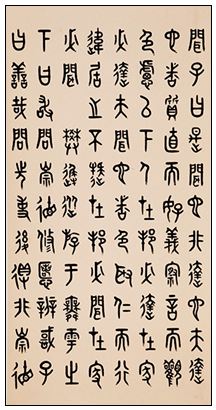 聞子曰是聞也非達也夫達
也者質直而好義察言而觀
色慮以下人在邦必達在家
必達夫聞也者色取仁而行
違居之不疑在邦必聞在家
必聞樊遲從遊于舞雩之
下曰敢問崇德修慝辨惑子
曰善哉問先事後得非崇德